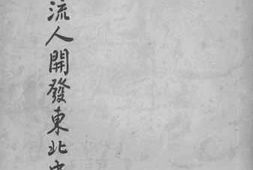 流人開發東北史